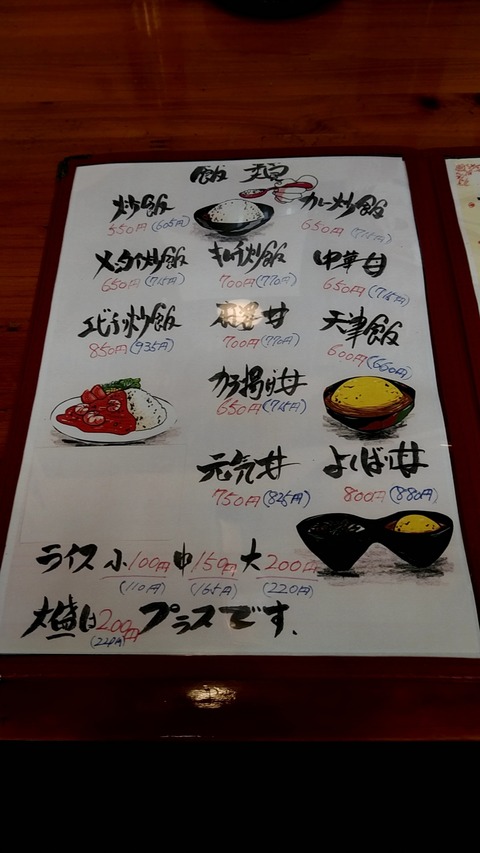 飯類
炒飯 カレー炒飯
550円(605円) 650円(715円)
メンタイ炒飯 キムチ炒飯 中華丼
650円(715円) 700円(770円) 650円(715円)
エビチリ炒飯 麻婆丼 天津飯
850円(935円) 700円(770円) 600円(660円)
カラ揚げ丼
650円(715円)
元気丼 よくばり丼
750円(825円) 800円(880円)
ライス 小100円 中150円 大200円
(110円) (165円) (220円)
大盛は200円プラスです.
(220円)